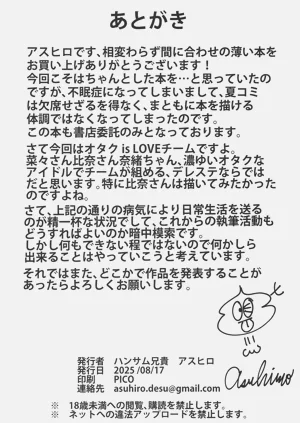 あとがき
アスヒロです、相変わらず間に合わせの薄い本を
お買い上げありがとうございます！
今回こそはちゃんとした本を…と思っていたの
ですが、不眠症になってしまいまして、夏コミ
は欠席せざるを得なく、まともに本を描ける
体調ではなくなってしまったのです。
この本も書店委託のみとなっております。
さて今回はオタク is LOVEチームですよ。
菜々さん比奈さん奈緒ちゃん、濃ゆいオタクな
アイドルでチームが組める、デレステならでは
だと思います。特に比奈さんは描いてみたかった
のですよね。
さて、上記の通りの病気により日常生活を送る
のが精一杯な状況でして、これからの執筆活動も
どうすればよいのか暗中模索です。
しかし何もできない程ではないので何かしら
出来ることはやっていこうと考えています。
それではまた、どこかで作品を発表することが
あったらよろしくお願いします。
asuhiro
発行者　ハンサム兄貴　アスヒロ
発行日　2025/08/17
印刷　PICO
連絡先　asuhiro.desu@gmail.com
※　18歳未満への閲覧、購読を禁止します。
※　ネットへの違法アップロードを禁止します。